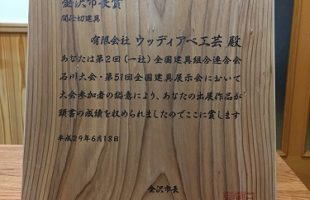 金沢市長賞
間仕切建具
有限会社 ウッディアベ工芸 殿
あなたは第2回(一社)全国建具組合連合会
石川大会・第51回全国建具展示会において
大会参加者の総意により、あなたの出展作品が
頭書の成績を収められましたのでここに賞します
平成29年6月18日
金沢市長